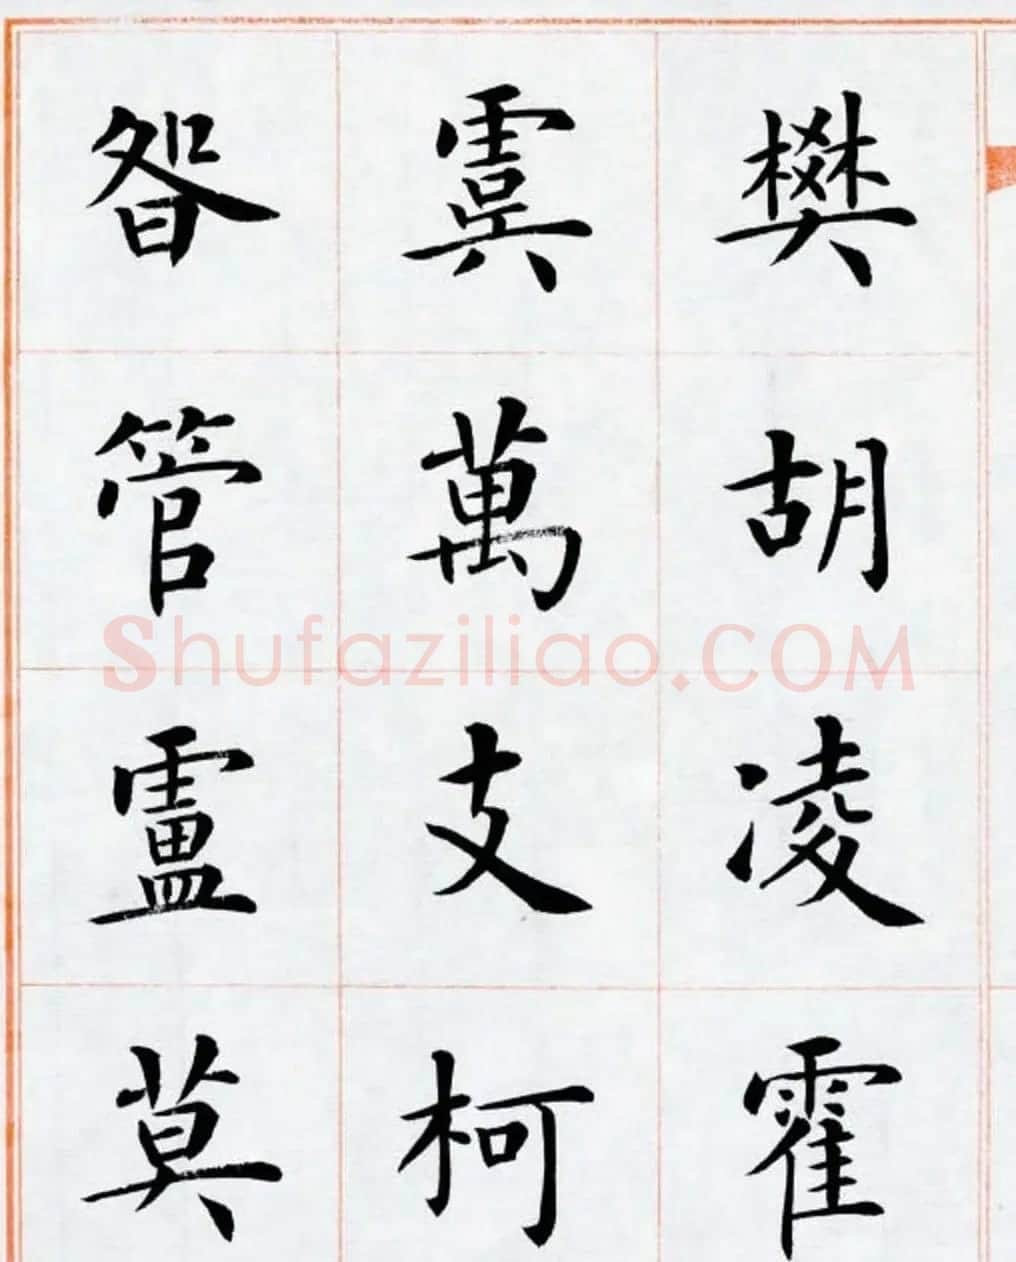 樊胡凌霍
虞萬支柯
昝管盧莫
Shufaziliao.COM